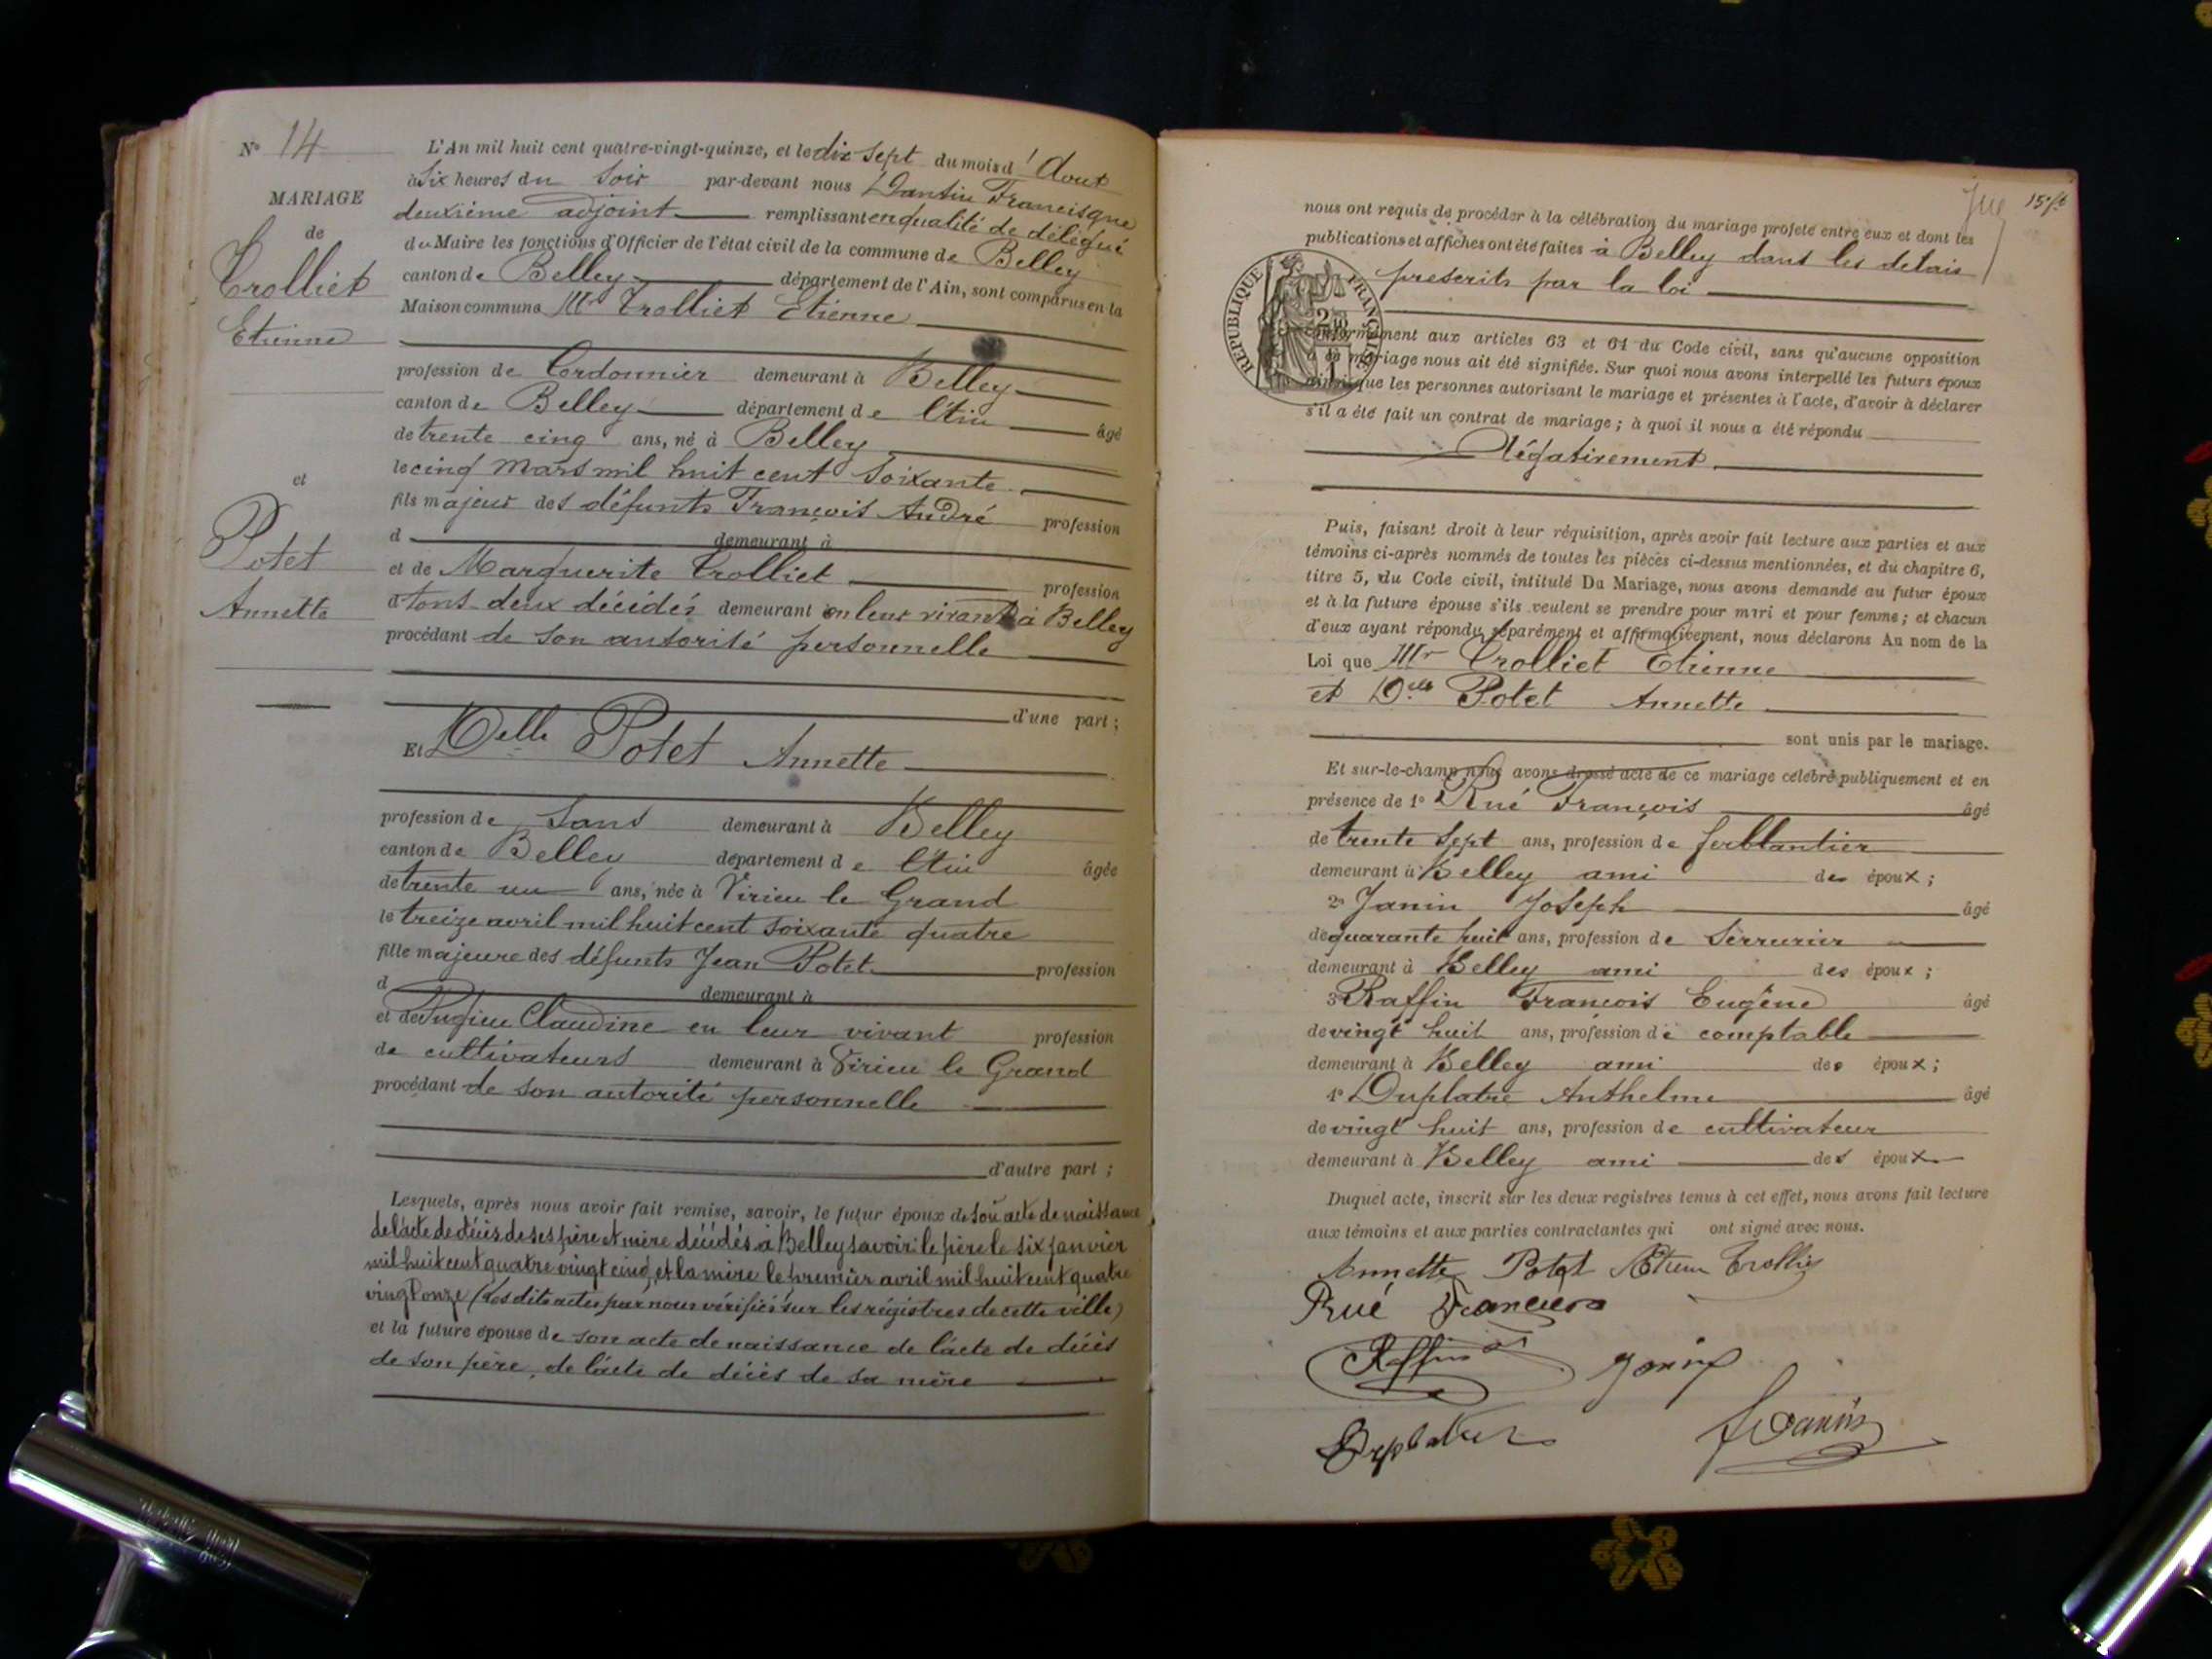 N° 14
MARIAGE
de
Trolliet
Etienne
et
Potet
Annette
L'An mil huit cent quatre-vingt-quinze, et le dix sept du mois d'Aout
à Six heures du Soir par-devant nous Dantin Francisque
deuxième adjoint remplissant en qualité de délégué
du Maire les fonctions d'Officier de l'état civil de la commune de Belley
canton de Belley département de l'Ain, sont comparus en la
Maison commune Mr Trolliet Etienne
profession de Cordonnier demeurant à Belley
canton de Belley département de l'Ain âgé
de trente cinq ans, né à Belley
le cinq Mars mil huit cent Soixante
fils majeur des défunts François André profession
d demeurant à
et de Marguerite Trolliet profession
d tous deux décédés demeurant en leur vivant à Belley
procédant de son autorité personnelle
d'une part ;
Et Delle Potet Annette
profession de Sans demeurant à Belley
canton de Belley département de l'Ain âgée
de trente un ans, née à Virieu le Grand
le treize avril mil huit cent soixante quatre
fille majeure des défunts Jean Potet profession
d demeurant à
et de Pugieu Claudine en leur vivant profession
de cultivateurs demeurant à Virieu le Grand
procédant de son autorité personnelle
d'autre part ;
Lesquels, après nous avoir fait remise, savoir, le futur époux de son acte de naissance
de l'acte de décès de ses père et mère décédés à Belley savoir le père le six janvier
mil huit cent quatre vingt cinq, et la mère le premier avril mil huit cent quatre
vingt onze (Lesdits actes par nous vérifiés sur les régistres de cette ville)
et la future épouse de son acte de naissance de l'acte de décès
de son père, de l'acte de décès de sa mère
15
nous ont requis de procéder à la célébration du mariage projeté entre eux et dont les
publications et affiches ont été faites à Belley dans les délais
prescrits par la loi
RÉPUBLIQUE FRANÇAISE
conformément aux articles 63 et 64 du Code civil, sans qu'aucune opposition
à ce mariage nous ait été signifiée. Sur quoi nous avons interpellé les futurs époux
ainsi que les personnes autorisant le mariage et présentes à l'acte, d'avoir à déclarer
s'il a été fait un contrat de mariage ; à quoi il nous a été répondu
Négativement
Puis, faisant droit à leur réquisition, après avoir fait lecture aux parties et aux
témoins ci-après nommés de toutes les pièces ci-dessus mentionnées, et du chapitre 6,
titre 5, du Code civil, intitulé Du Mariage, nous avons demandé au futur époux
et à la future épouse s'ils veulent se prendre pour mari et pour femme ; et chacun
d'eux ayant répondu séparément et affirmativement, nous déclarons Au nom de la
Loi que Mr Trolliet Etienne
et Delle Potet Annette
sont unis par le mariage.
Et sur-le-champ nous avons dressé acte de ce mariage célébré publiquement et en
présence de 1° Rué François âgé
de trente Sept ans, profession de ferblantier
demeurant à Belley ami des époux ;
2° Janin Joseph âgé
de quarante huit ans, profession de Serrurier
demeurant à Belley ami des époux ;
3° Raffin François Eugène âgé
de vingt huit ans, profession de comptable
demeurant à Belley ami des époux ;
4° Duplatre Anthelme âgé
de vingt huit ans, profession de cultivateur
demeurant à Belley ami des époux
Duquel acte, inscrit sur les deux registres tenus à cet effet, nous avons fait lecture
aux témoins et aux parties contractantes qui ont signé avec nous.
Annette Potet Etienne Trolliet
Rué François
Raffin Janin
Duplatre Dantin